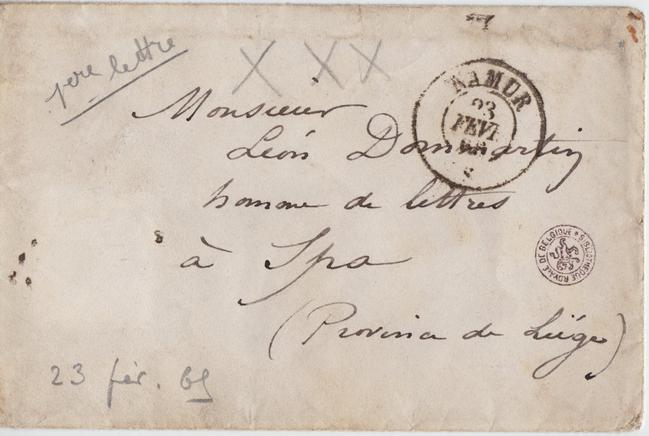 1ere lettre
X X X
NAMUR
23
FEVR
Monsieur
Léon Dommartin
homme de lettres
à Spa
(Province de Liége)
BIBLIOTHEQUE ROYALE DE BELGIQUE
23 fév. 65